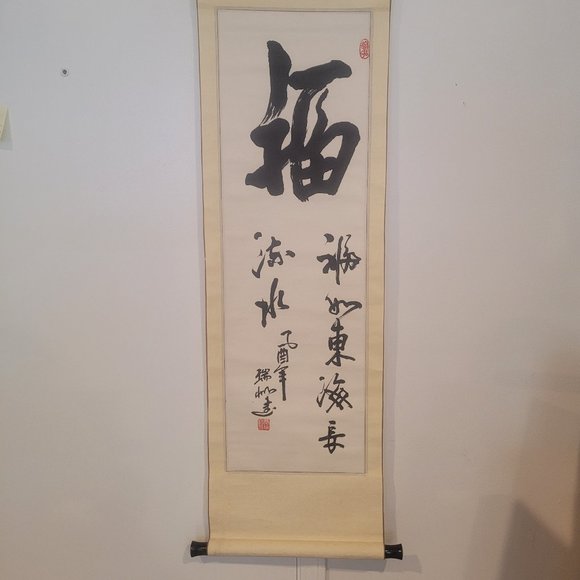 福
福如東海長
流水
乙酉年
瑞
書